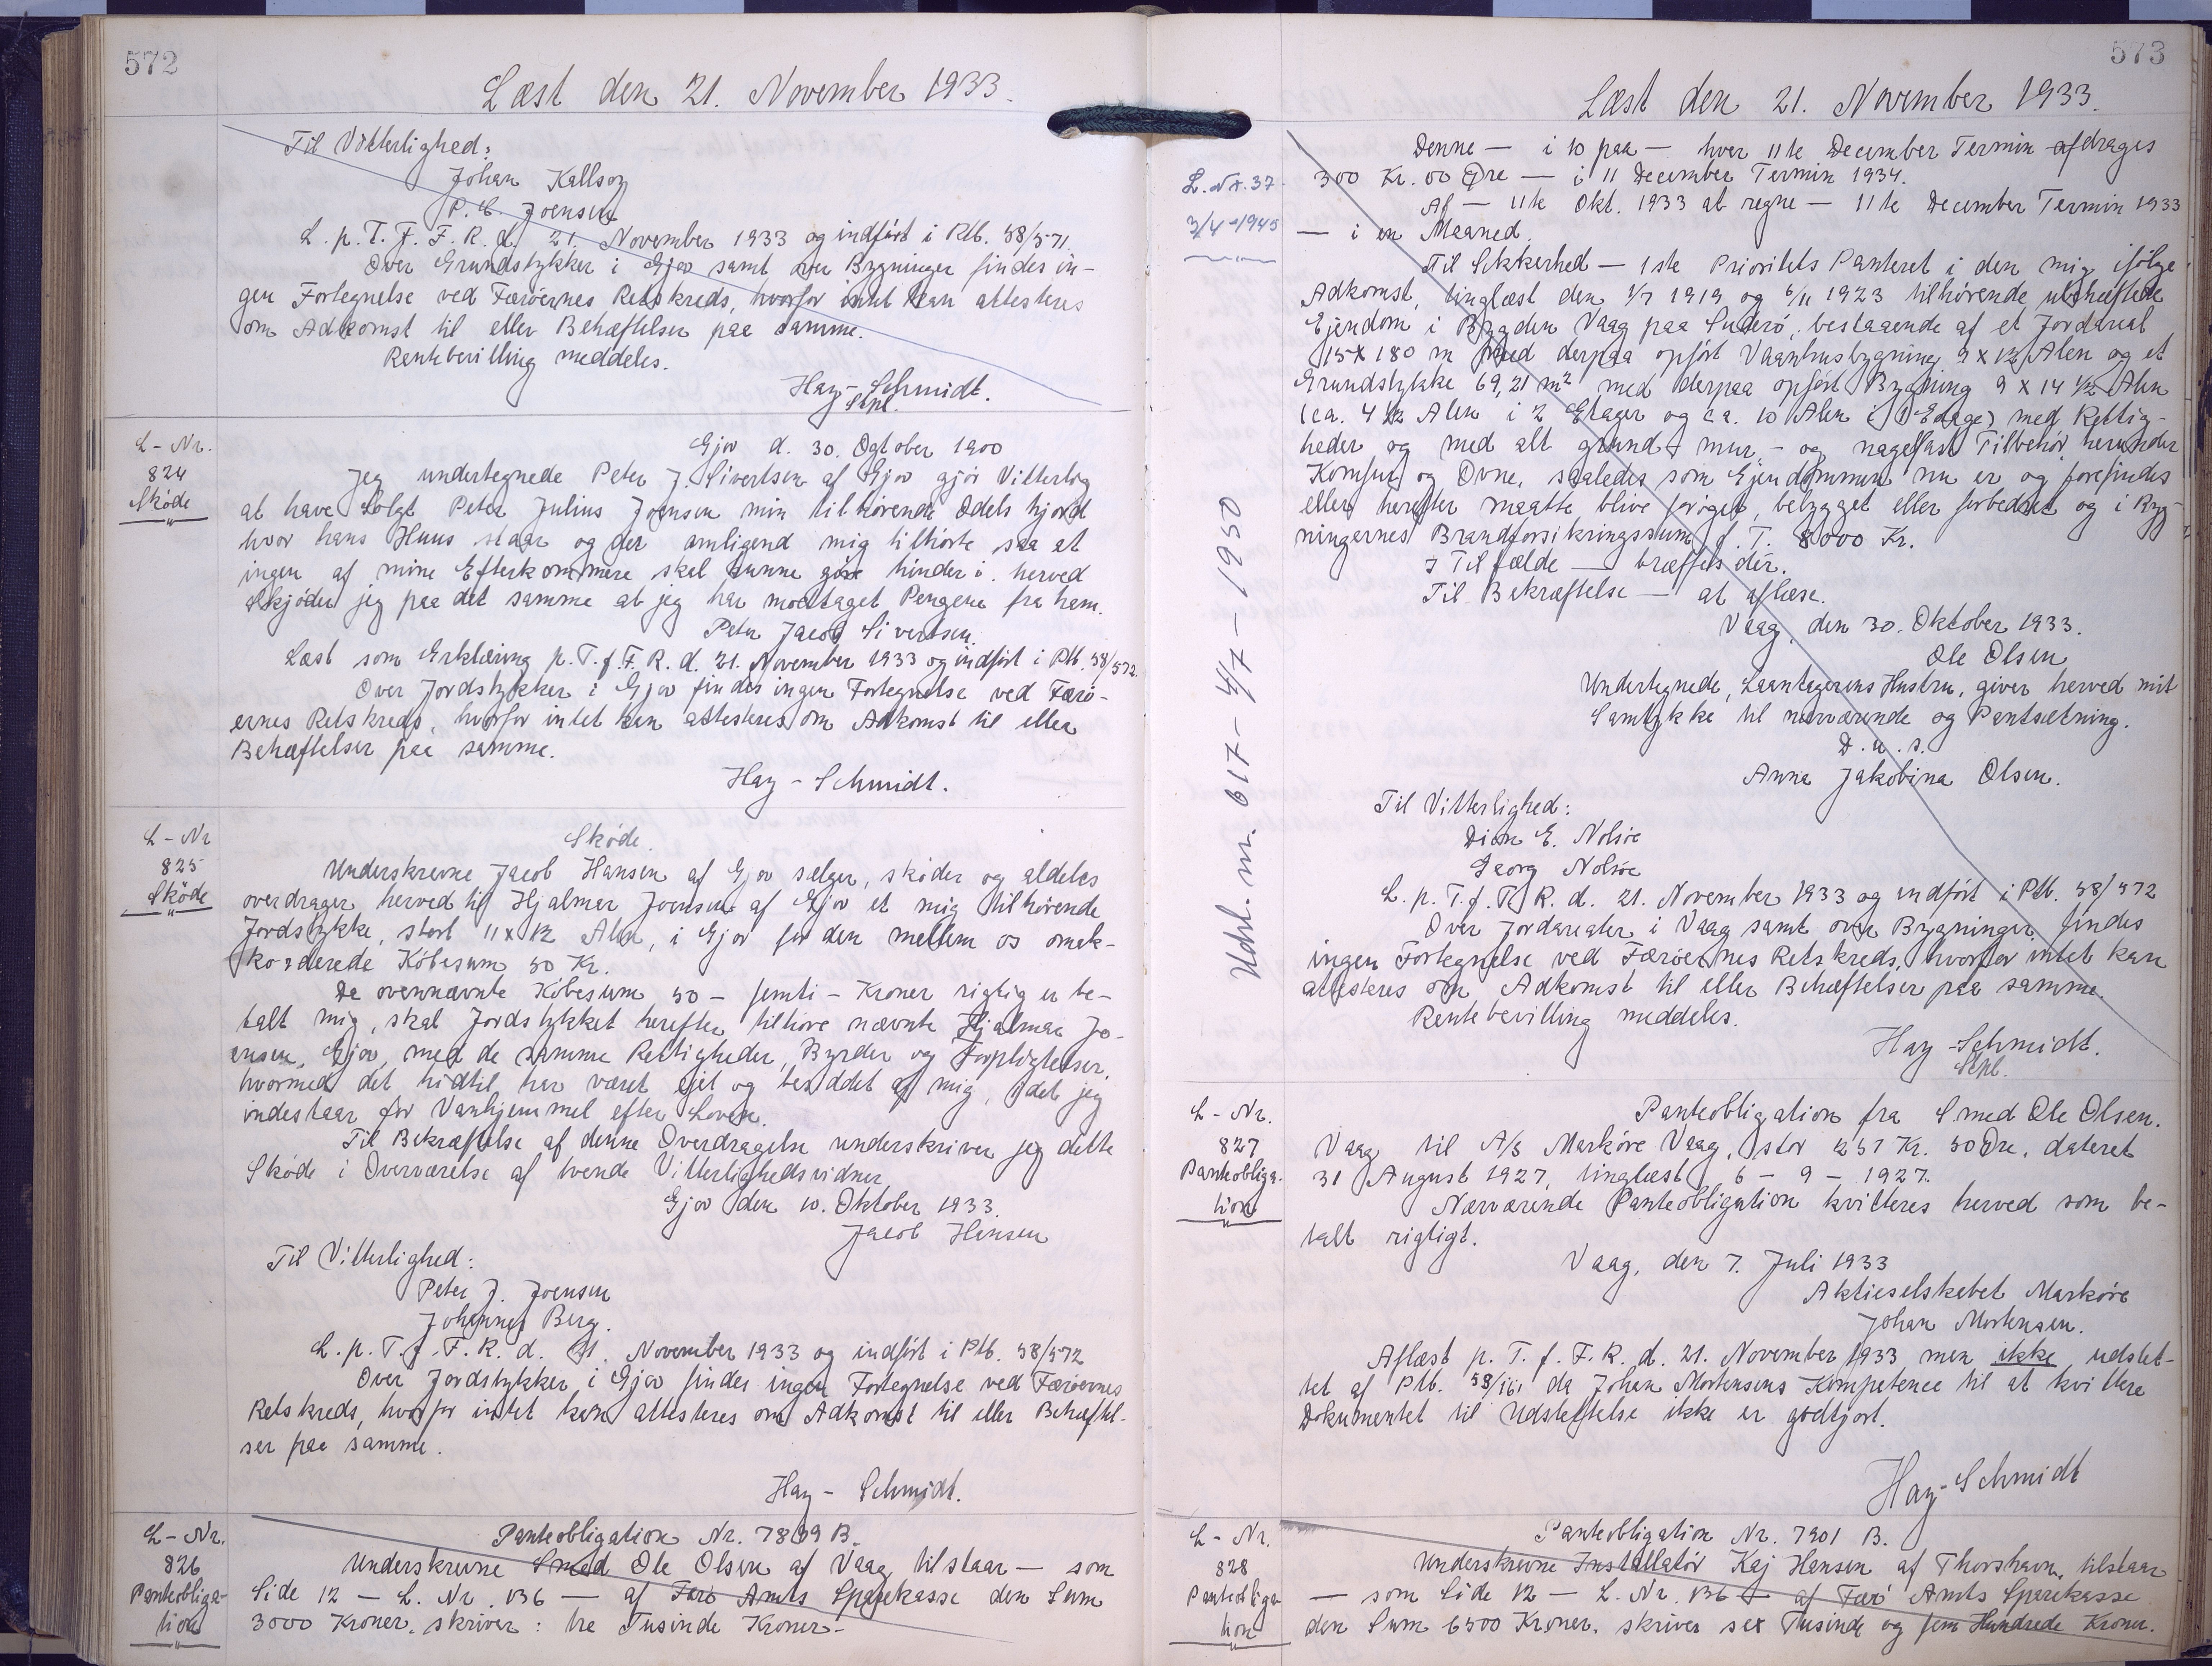 572
Læst den 21. November 1933.
Til Vitterlighed:
Johan Kallsoy
P. C. Joensen
L. p. T. f. F. R. d. 21. November 1933 og indført i Ptb. 58/571.
Over Grundstykker i Gjov samt over Bygninger findes in-
gen Fortegnelse ved Færøernes Retskreds, hvorfor intet kan attesteres
om Adkomst til eller Behæftelser paa samme.
Rentebevilling meddeles.
Hay-Schmidt.
Stpl.
L-Nr.
824
Skøde
Gjov d. 30. Ogtober 1900
Jeg undertegnede Peter J. Sivertsen af Gjov gjør Vitterlig
at have Solgt Peter Julius Joensen min tilhørende Odels hjord
hvor hans Huus staar og der omligend mig tilhørte saa at
ingen af mine Efterkommere skal kunne gøre hinder i. herved
skjøder jeg paa det samme at jeg har modtaget Pengene fra ham.
Peter Jacob Sivertsen.
Læst som Erklæring p. T. f. F. R. d. 21. November 1933 og indført i Ptb. 58/572.
Over Jordstykker i Gjov findes ingen Fortegnelse ved Færø-
ernes Retskreds, hvorfor intet kan attesteres om Adkomst til eller
Behæftelser paa samme.
Hay-Schmidt.
L-Nr
825
Skøde
Skøde.
Underskrevne Jacob Hansen af Gjov sælger, skøder og aldeles
overdrager herved til Hjalmar Joensen af Gjov et mig tilhørende
Jordstykke, stort 11 x 12 Alen, i Gjov for den mellem os omak-
korderede Købesum 50 Kr.
Da ovennævnte Købesum 50 - femti - Kroner rigtig er be-
talt mig, skal Jordstykket herefter tilhøre nævnte Hjalmar Jo-
ensen, Gjov, med de samme Rettigheder, Byrder og Forpligtelser,
hvormed det hidtil har været ejet og besiddet af mig, idet jeg
indestaar for Vanhjemmel efter Loven.
Til Bekræftelse af denne Overdragelse underskriver jeg dette
Skøde i Overværelse af tvende Vitterlighedsvidner
Gjov den 10. Oktober 1933.
Jacob Hansen
Til Vitterlighed:
Peter J. Joensen
Johannes Berg.
L. p. T. f. F. R. d. 21. November 1933 og indført i Ptb. 58/572
Over Jordstykker i Gjov findes ingen Fortegnelse ved Færøernes
Retskreds, hvorfor intet kan attesteres om Adkomst til eller Behæftel-
ser paa samme.
Hay-Schmidt.
L-Nr.
826
Panteobliga-
tion
Panteobligation Nr. 7899 B.
Underskrevne Smed Ole Olsen af Vaag tilstaar — som
Side 12 — L. Nr. 136 — af Færø Amts Sparekasse den Sum
3000 Kroner, skriver: tre Tusinde Kroner-
573
Læst den 21. November 1933.
L. Nr. 37
3/4-1945
Udsl. nr. 617 - 4/7 - 1950
Denne — i 10 paa — hver 11te December Termin afdrages
300 Kr. 00 Øre — i 11 December Termin 1934.
Af — 11te Okt. 1933 at regne — 11te December Termin 1933
— i en Maaned.
Til Sikkerhed — 1ste Prioritets Panteret i den mig ifølge
Adkomst, tinglæst den 1/7 1919 og 6/11 1923 tilhørende ubehæftede
Ejendom i Bygden Vaag paa Suderø, bestaaende af et Jordareal
15 x 180 m med derpaa opført Vaanhusbygning 9 x 12 Alen og et
Grundstykke 69,21 m² med derpaa opført Bygning 9 x 14 1/2 Alen
(ca. 4 1/2 Alen i 2 Etager og ca. 10 Alen i 1 Etage) med Rettig-
heder og med alt grund-, mur- og nagelfast Tilbehør, herunder
Komfur og Ovne, saaledes som Ejendommen nu er og forefindes
eller herefter maatte blive forøget, bebygget eller forbedret og i Byg-
ningernes Brandforsikringssum f. T. 8000 Kr.
I Tilfælde — træffes dér.
Til Bekræftelse — at aflæse.
Vaag, den 30. Oktober 1933.
Ole Olsen
Undertegnede, Laantagerens Hustru, giver herved mit
Samtykke til nærværende og Pantsætning.
D. u. s.
Anna Jakobina Olsen.
Til Vitterlighed:
Dion E. Nolsøe
Georg Nolsøe
L. p. T. f. F. R. d. 21. November 1933 og indført i Ptb. 58/572
Over Jordarealer i Vaag samt over Bygninger findes
ingen Fortegnelse ved Færøernes Retskreds, hvorfor intet kan
attesteres om Adkomst til eller Behæftelser paa samme.
Rentebevilling meddeles.
Hay-Schmidt.
Stpl.
L-Nr.
827
Panteobliga-
tion
Panteobligation fra Smed Ole Olsen.
Vaag til A/S Markóre Vaag, stor 257 Kr. 50 Øre, dateret
31 August 1927, tinglæst 6 - 9 - 1927.
Nærværende Panteobligation kvitteres herved som be-
talt rigtigt.
Vaag, den 7. Juli 1933
Aktieselskabet Markóre
Johan Mortensen.
Aflæst p. T. f. F. R. d. 21. November 1933 men ikke udslet-
tet af Ptb. da Johan Mortensens Kompetence til at kvittere
Dokumentet til Udslettelse ikke er godtjort.
Hay-Schmidt
L-Nr.
828
Panteobliga-
tion
Panteobligation Nr. 7901 B.
Underskrevne Installatør Kaj Hansen af Thorshavn, tilstaar
— som Side 12 — L. Nr. 136 — af Færø Amts Sparekasse
den Sum 6500 Kroner, skriver sex Tusinde og fem Hundrede Kroner.